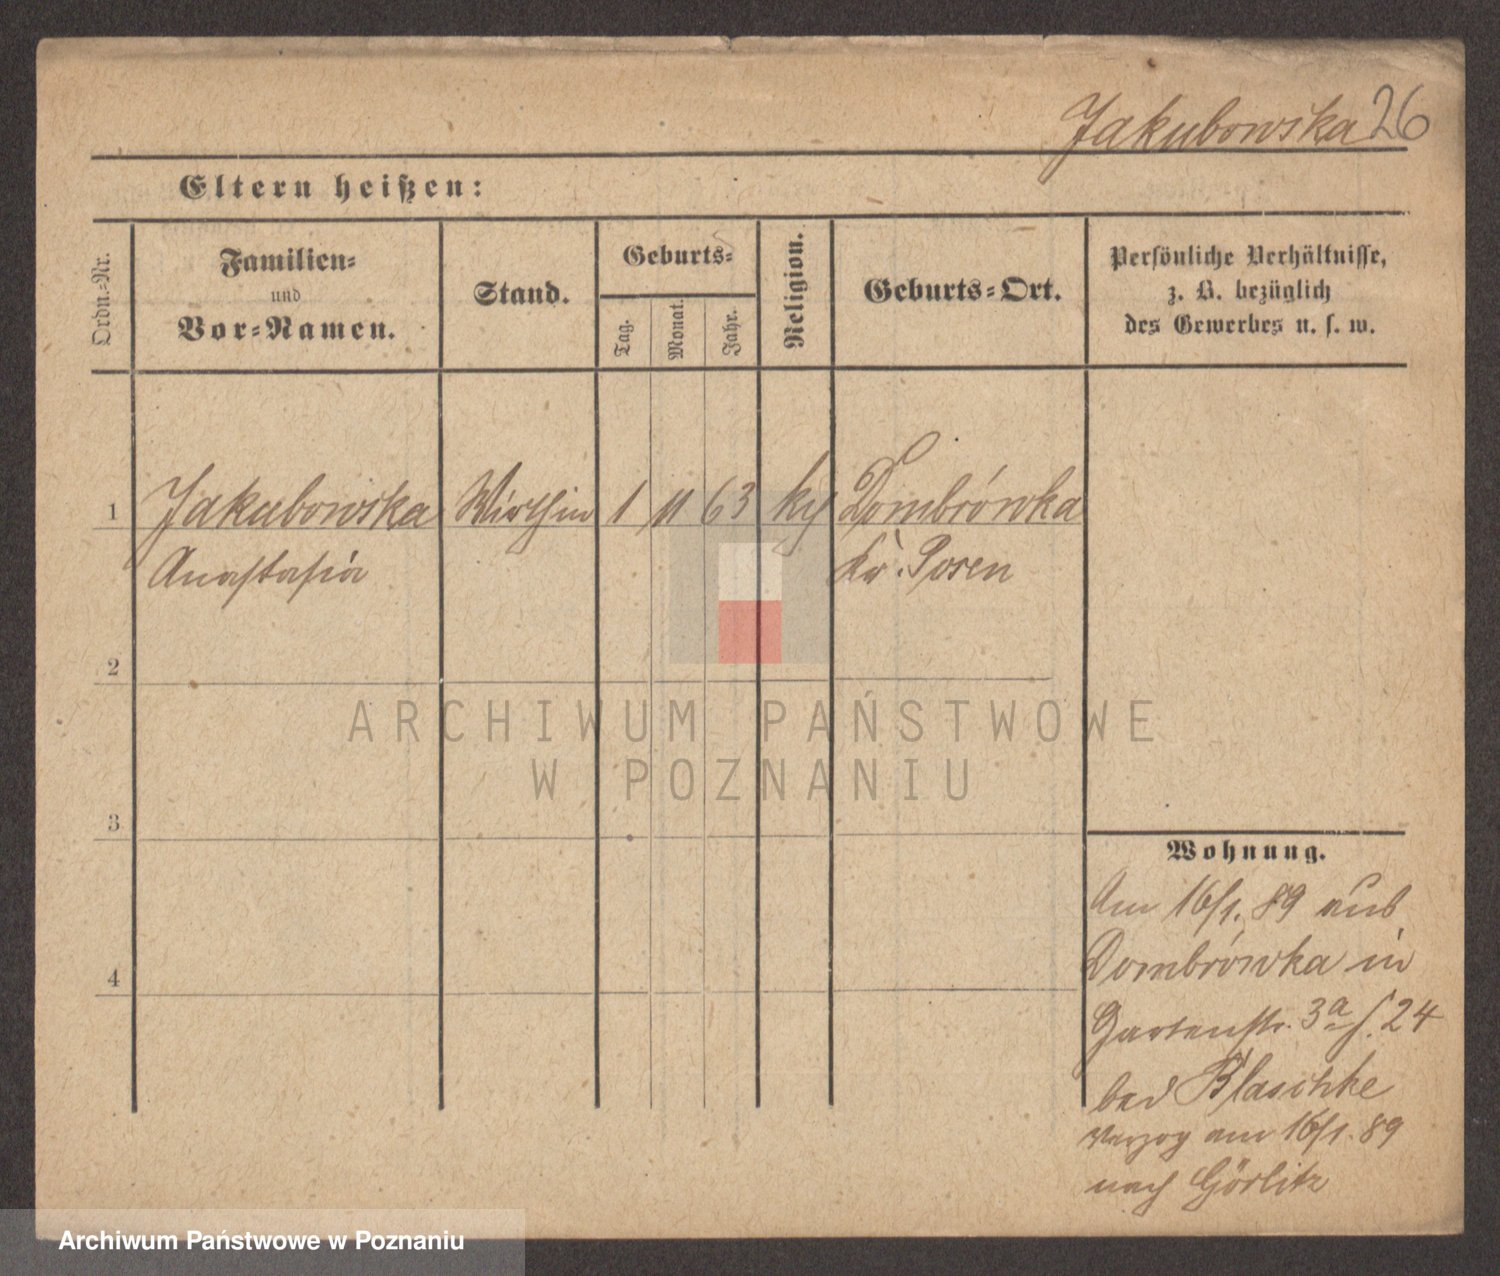 Jakubowska 26
Eltern heißen:
Ordn.-Nr.
Familien-
und
Vor-Namen.
Stand.
Geburts-
Tag.
Monat.
Jahr.
Religion.
Geburts-Ort.
Persönliche Verhältnisse,
z. B. bezüglich
des Gewerbes u. s. w.
1 Jakubowska Wirthin 1 11 63 Dombrówka
Anastasia Kr. Posen
2
3
4
Wohnung.
Am 16/1. 89 aus
Dombrówka in
Gartenstr. 3a 24
bei Blaschke
verzog am 16/1. 89
nach Görlitz
ARCHIWUM PAŃSTWOWE
W POZNANIU
Archiwum Państwowe w Poznaniu